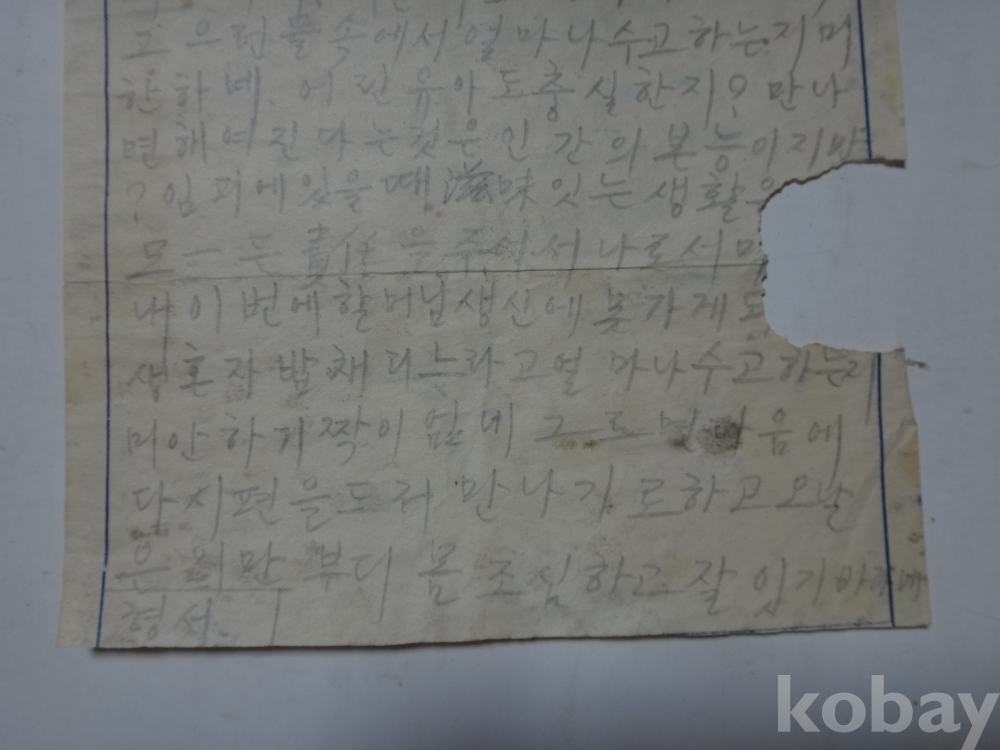 그 으런들속에서 얼마나수고하는지 머
한하네. 어린유아도충실한지? 만나
면해여진다는것은 인간의본능이지만
? 임피에있을때. 滋味있는생활
모ー든 責任을주 서 나로서
내이번에할머님생신에못가게도
생혼자밥채리느라고얼마나수고하는지
미안하기짝이없네 그르면다음에
다시편을드러 만나기로하고오날
은 이만 부디 몸조심하고 잘있기바라네
형서.
kobay